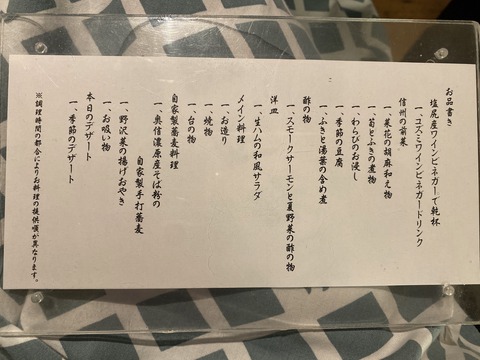 お品書き
塩尻産ワインビネガーで乾杯
一、コズミワインビネガードリンク
信州の前菜
一、菜花の胡麻和え物
一、筍とふきの煮物
一、わらびのお浸し
一、季節の豆腐
一、ふきと湯葉の含め煮
酢の物
一、スモークサーモンと夏野菜の酢の物
洋皿
一、生ハムの和風サラダ
メイン料理
一、お造り
一、焼物
一、台の物
自家製蕎麦料理
一、奥信濃原産そば粉の
自家製手打蕎麦
一、野沢菜の揚げおやき
一、お吸い物
本日のデザート
一、季節のデザート
※調理時間の都合によりお料理の提供順が異なります。